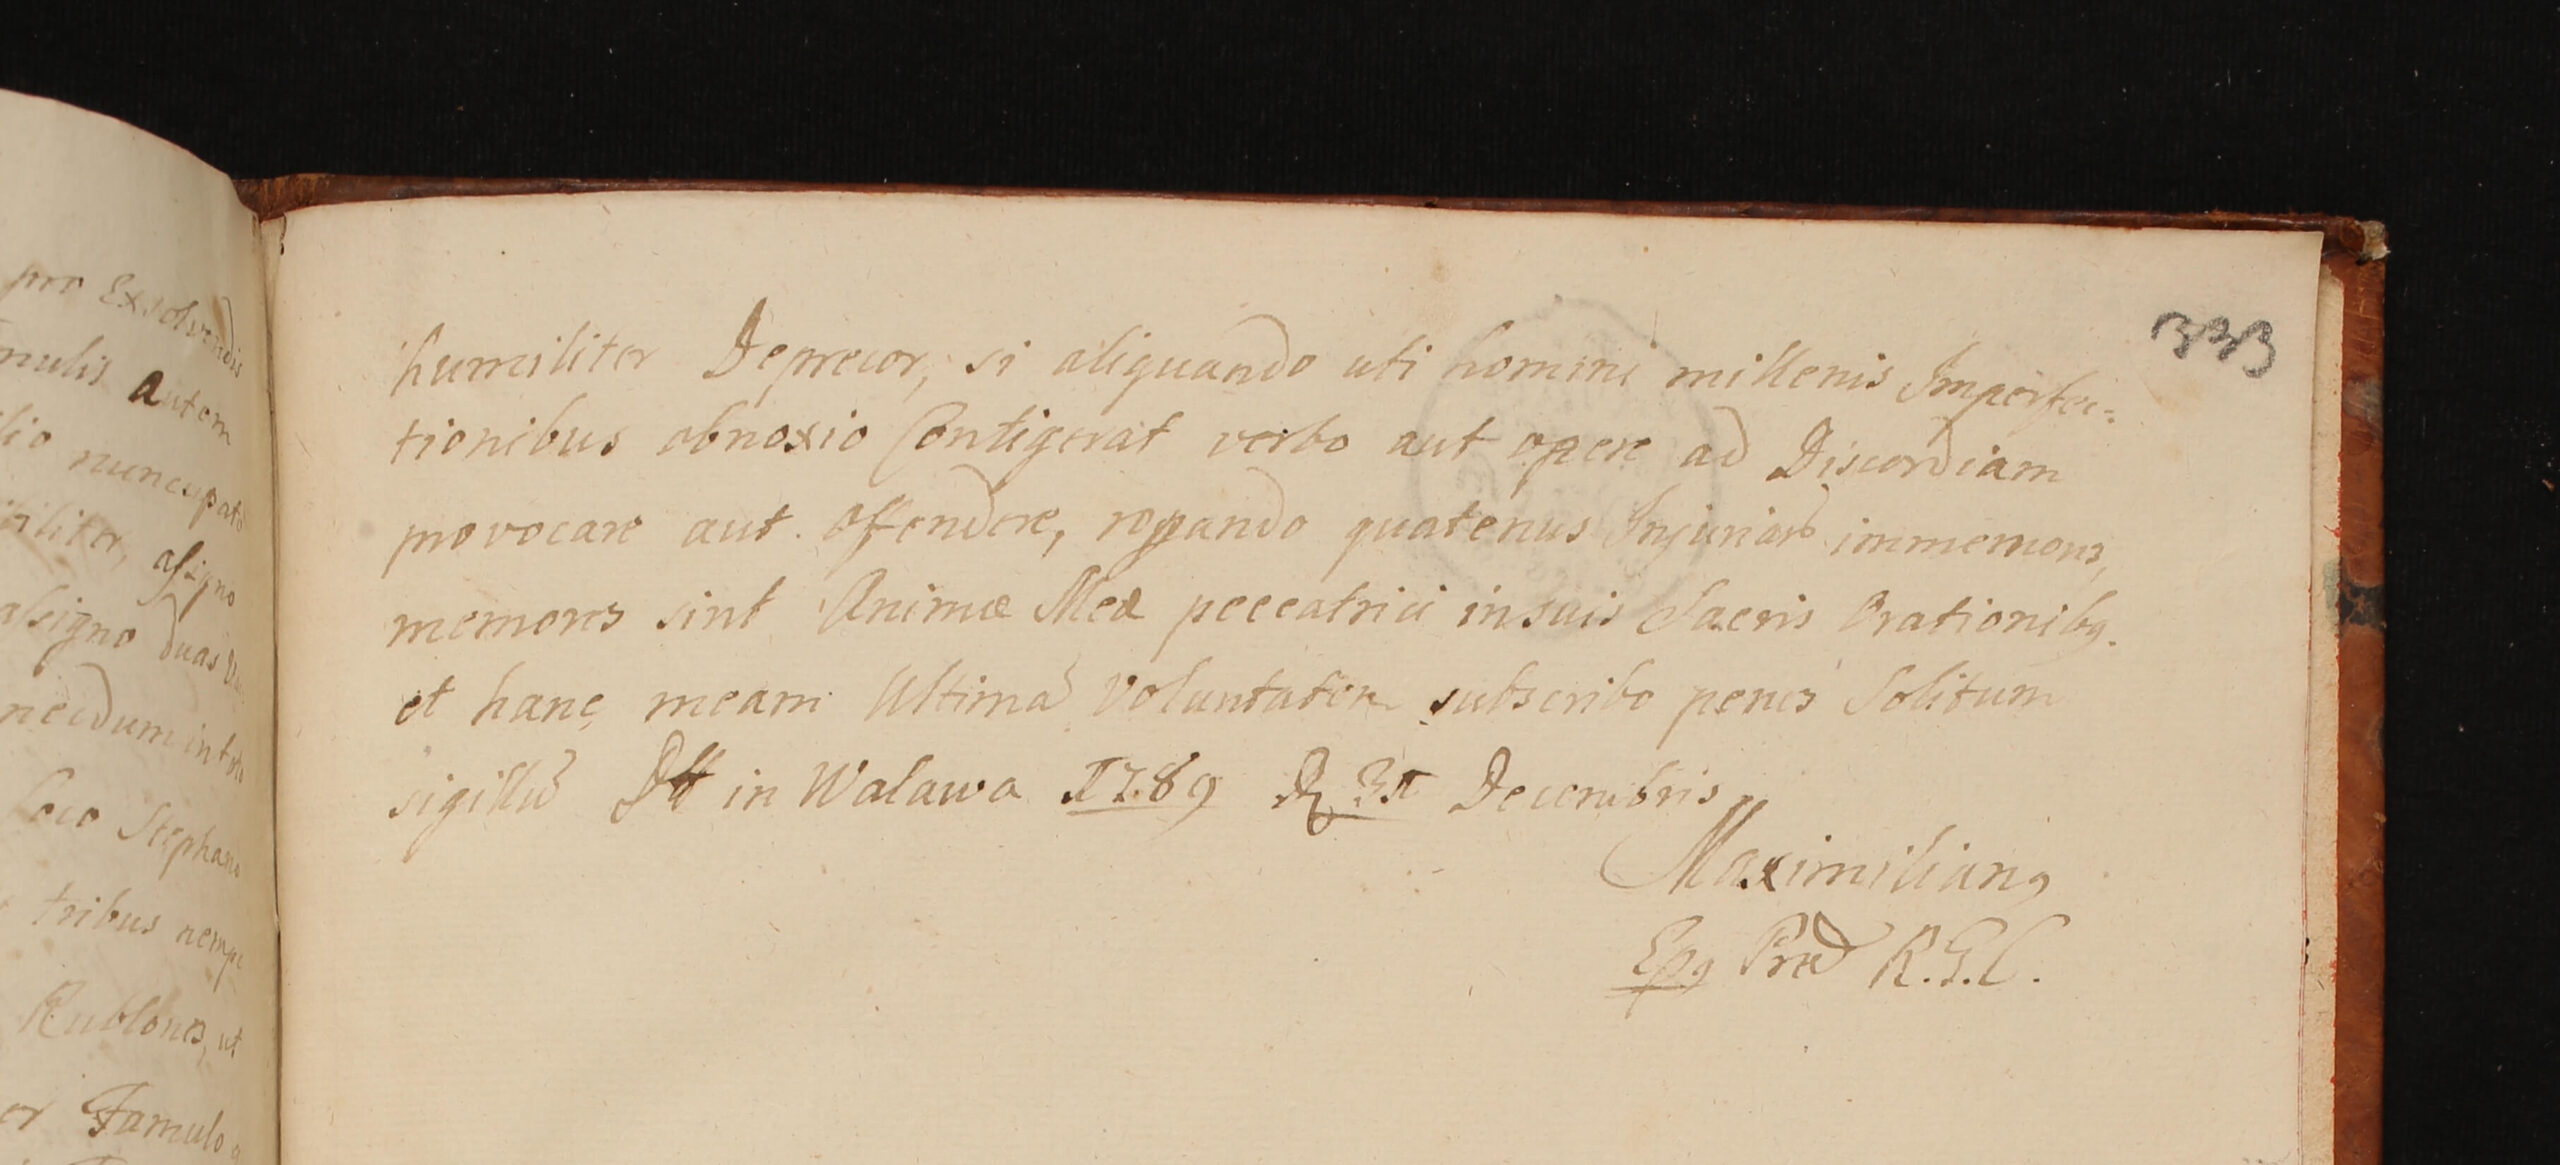 pro Exsolvendis
mulis autem
lio nuncupato
iliter, assigno
assigno duas
necdum in toto
loco Stephano
tribus nempe
Rublones, ut
er Famulo
333
humiliter Deprecor, si aliquando uti homini millenis Imperfec=
tionibus obnoxio Contigerat verbo aut opere ad Discordiam
provocare aut offendere, rogando quatenus Injuriarũ immemores,
memores sint Animæ Meæ peccatrici in suis Sacris Orationibq.
et hanc meam Ultimã Voluntatem subscribo penes Solitum
sigillũ Dtt in Walawa 1789 D 31 Decembris
Maximilianq
Epq Præd R.G.C.